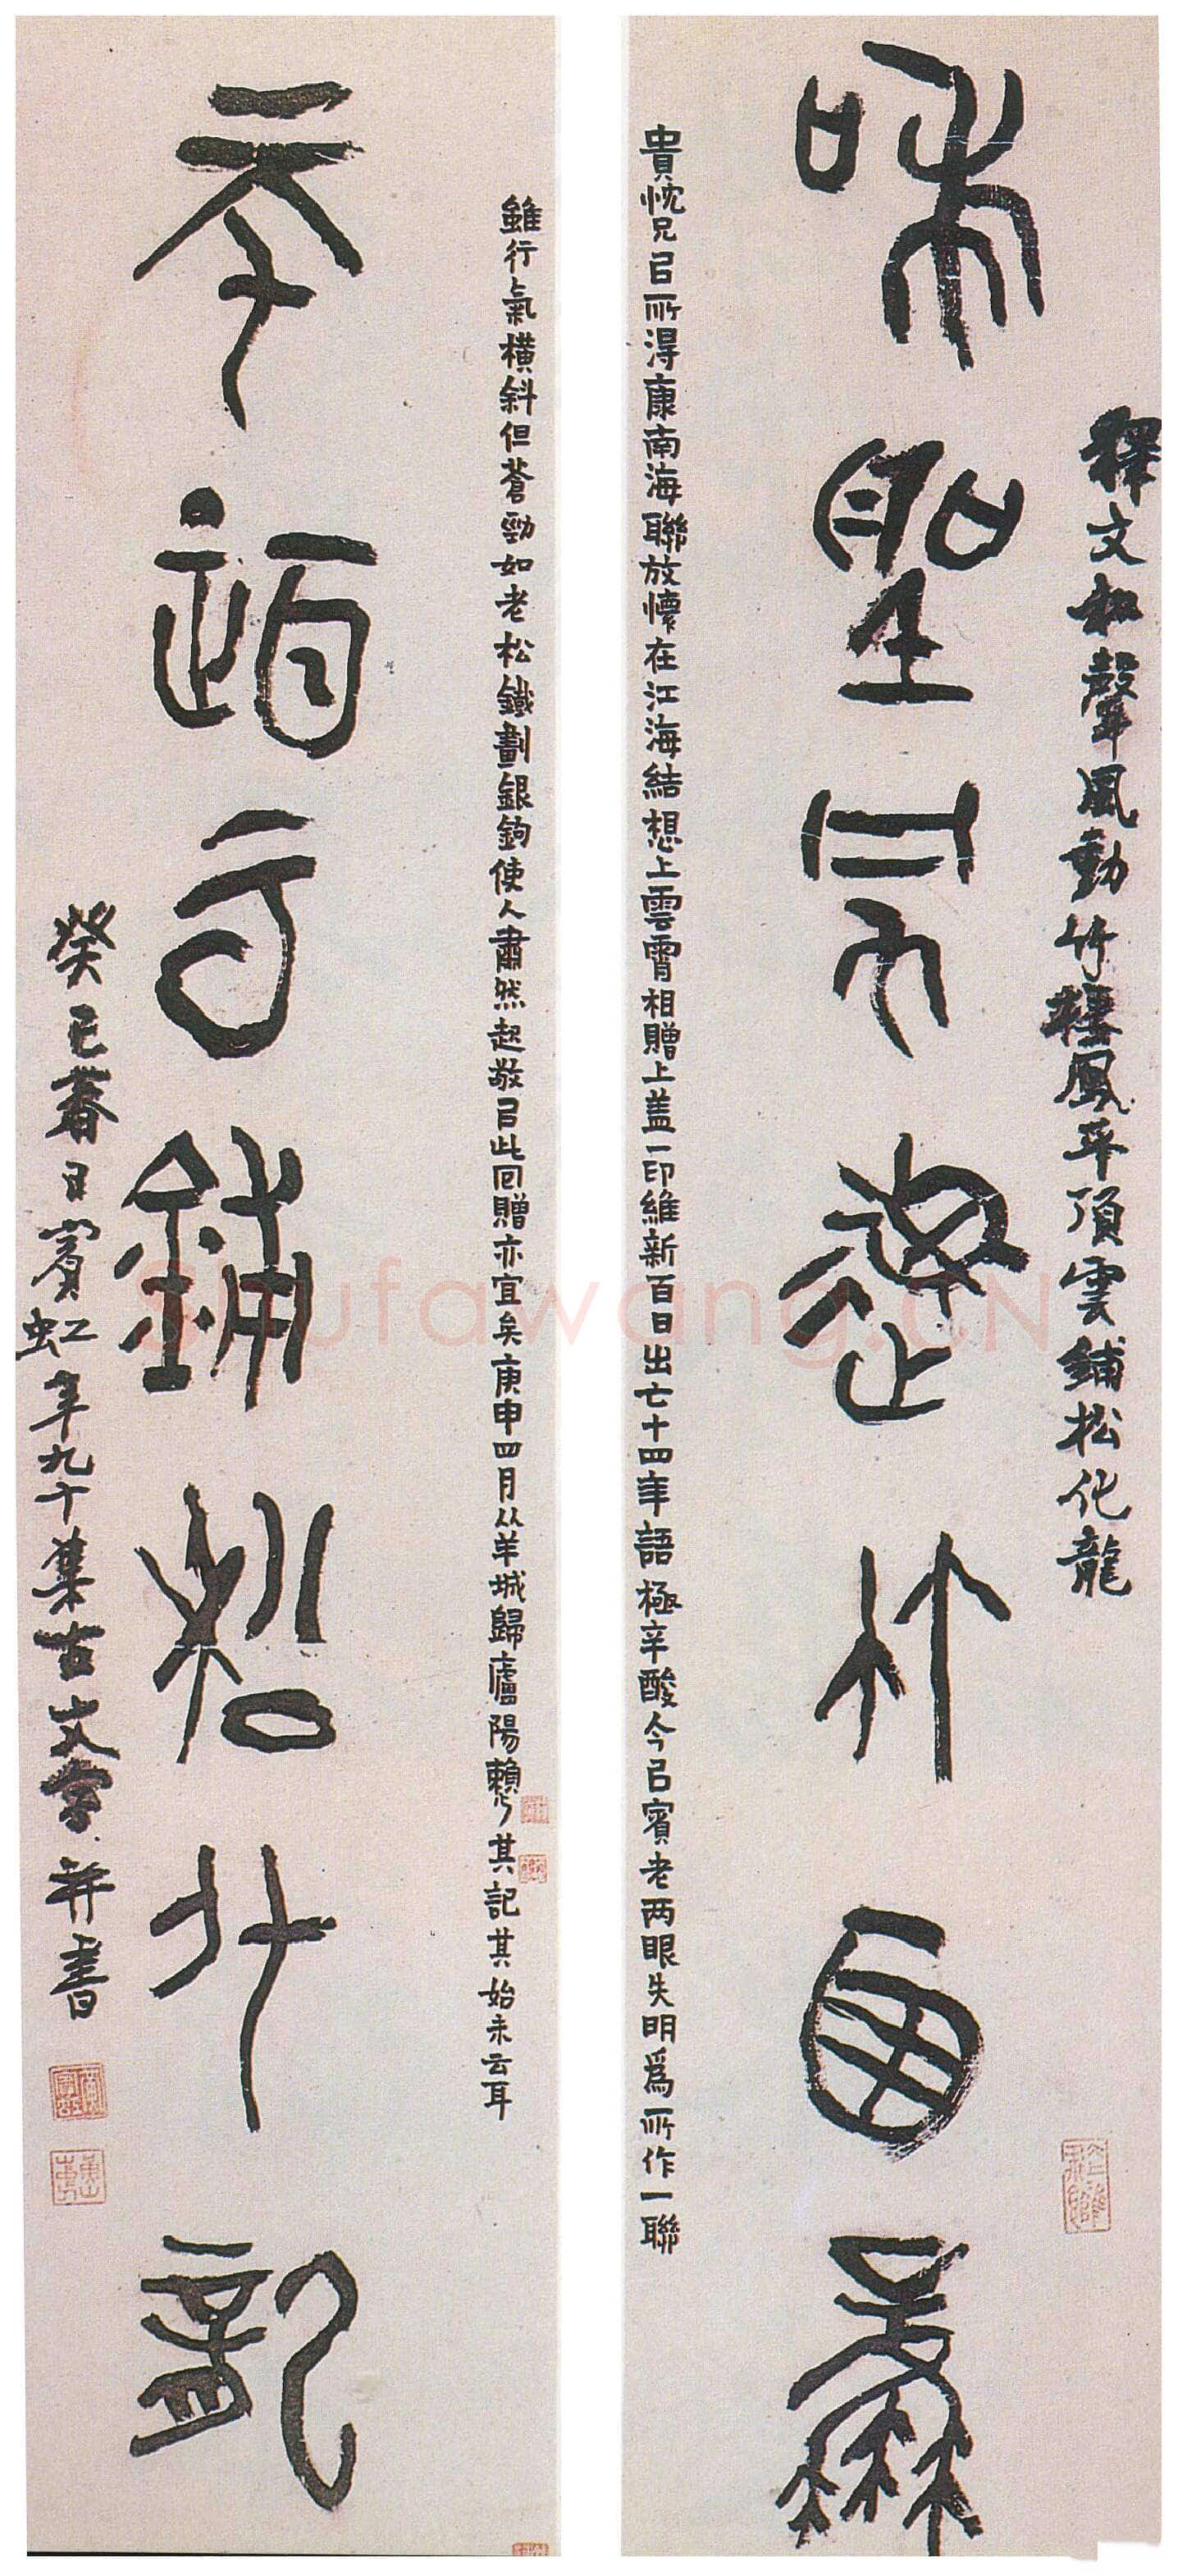 释文和聲風動竹棲鳳平頂雲鋪松化龍
和聲風動竹棲鳳
貴忱兄㠯所得康南海聯放懷在江海結想上雲霄相贈上蓋一印維新百日出亡十四年語極辛酸今㠯賓老两眼失明爲所作一聯
雖行氣橫斜但蒼勁如老松鐵劃銀鉤使人肅然起敬㠯此回贈亦宜矣庚申四月从羊城歸廬陽賴少其記其始末云耳
平頂雲鋪松化龍
癸巳春日賓虹年九十集古文字并書
Shufawang.CN